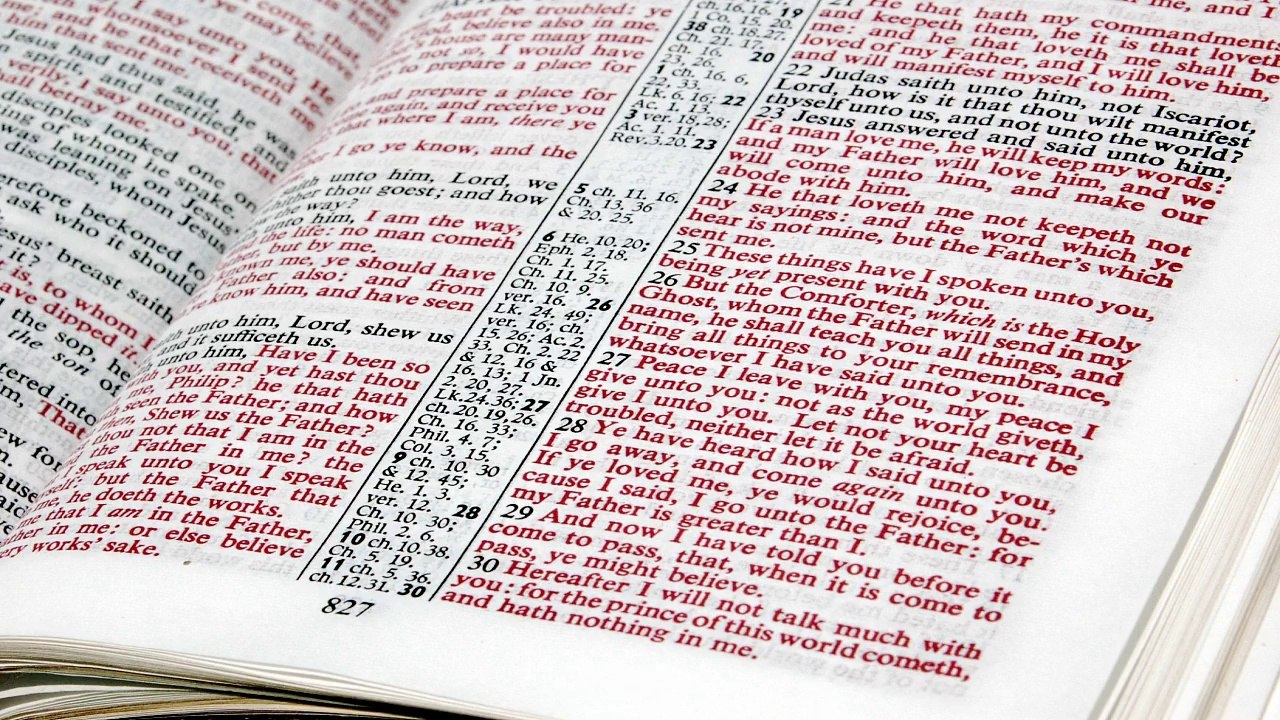 come, that,
I say unto you, He
whomsoever I send
me; and he that receiveth me
him that sent me.
Jesus had thus said, he was
spirit, and testified, and
verily, I say unto you, that
shall betray me.
disciples looked one on
of whom he spake.
was leaning on Jesus'
disciples, whom Jesus
beckoned to
ask who it should
breast saith
it?
is, to whom I
have dipped it.
the sop, he
the son of
into
That
be troubled: ye
believe also in me.
house are many man-
not so, I would have
to prepare a place for
and prepare a place for
again, and receive you
that where I am, there ye
I go ye know, and the
unto him, Lord, we
thou goest; and how
the way?
unto him, I am the way,
the life: no man cometh
but by me.
known me, ye should have
Father also: and from
know him, and have seen
unto him, Lord, shew us
and it sufficeth us.
unto him, Have I been so
with you, and yet hast thou
me, Philip? he that hath
seen the Father; and how
then, Shew us the Father?
thou not that I am in the
Father in me? the
speak unto you I speak
but the Father that
me, he doeth the works.
me that I am in the Father,
in me: or else believe
works' sake.
ch. 16. 16. 19
Co. 15. 20.
38 ch. 18. 27.
Ch. 21. 17.
ch. 16. 20
23, 26.
1 ch. 16. 6,
22, 33.
Lk. 6. 16; 22
Ac. 1. 13.
3 ver. 18, 28;
Ac. 1. 11.
Rev. 3. 20. 23
5 ch. 11. 16.
Ch. 13. 36
& 20. 25.
6 He. 10. 20;
Eph. 2. 18.
Ch. 1. 17.
Ch. 11. 25.
Ch. 10. 9.
ver. 16. 26
Lk. 24. 49;
ver. 16; ch.
15. 26; Ac. 2.
33. Ch. 2. 22
& 12. 16 &
16. 13; 1 Jn.
2. 20, 27.
Lk. 24. 36; 27
ch. 20. 19, 26.
Ch. 16. 33;
Phil. 4. 7;
Col. 3. 15.
9 ch. 10. 30
& 12. 45;
He. 1. 3.
ver. 12. 28
Ch. 10. 30;
Phil. 2. 6.
10 ch. 10. 38.
Ch. 5. 19.
11 ch. 5. 36.
ch. 12. 31. 30
21 He that hath my commandments,
and keepeth them, he it is that loveth
me: and he that loveth me shall be
loved of my Father, and I will love him,
and will manifest myself to him.
22 Judas saith unto him, not Iscariot,
Lord, how is it that thou wilt manifest
thyself unto us, and not unto the world?
23 Jesus answered and said unto him,
If a man love me, he will keep my words:
and my Father will love him, and we
will come unto him, and make our
abode with him.
24 He that loveth me not keepeth not
my sayings: and the word which ye
hear is not mine, but the Father's which
sent me.
25 These things have I spoken unto you,
being yet present with you.
26 But the Comforter, which is the Holy
Ghost, whom the Father will send in my
name, he shall teach you all things, and
bring all things to your remembrance,
whatsoever I have said unto you.
27 Peace I leave with you, my peace I
give unto you: not as the world giveth,
give I unto you. Let not your heart be
troubled, neither let it be afraid.
28 Ye have heard how I said unto you,
I go away, and come again unto you.
If ye loved me, ye would rejoice, be-
cause I said, I go unto the Father: for
my Father is greater than I.
29 And now I have told you before it
come to pass, that, when it is come to
pass, ye might believe.
30 Hereafter I will not talk much with
you: for the prince of this world cometh,
and hath nothing in me.
827